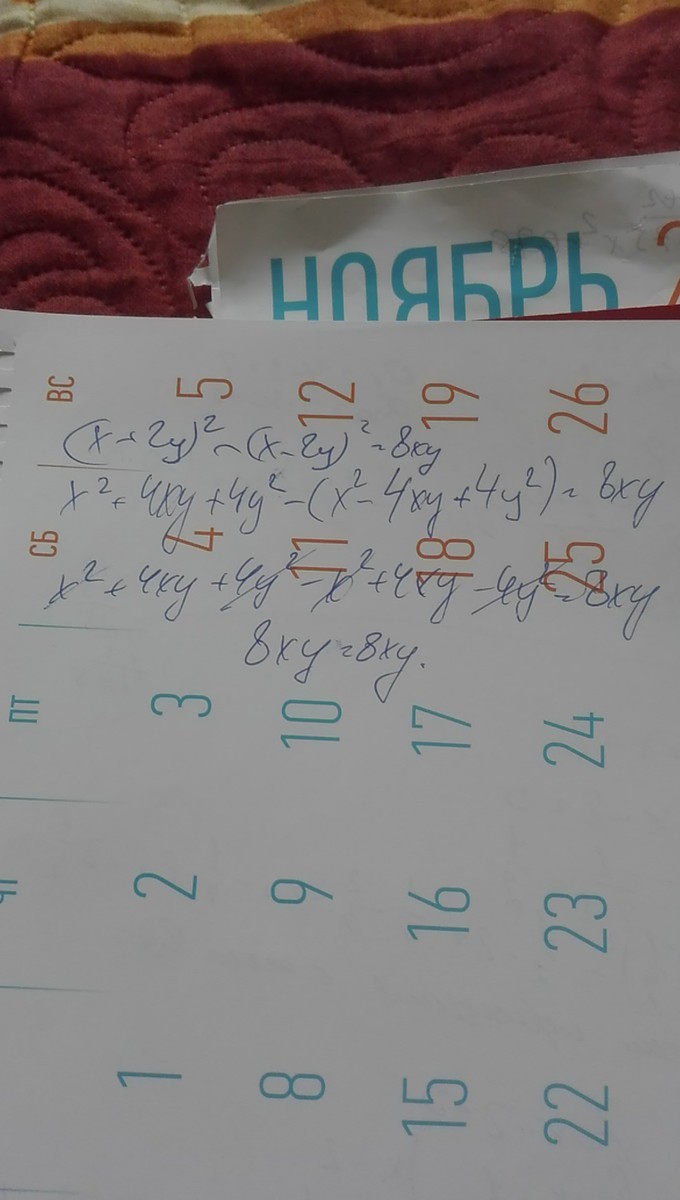 НОЯБРЬ 2
ВС 5 12 19 26
(x+2y)²-(x-2y)²=8xy
x²+4xy+4y²-(x²-4xy+4y²)=8xy
СБ 4 11 18 25
x²+4xy+4y²-x²+4xy-4y²=8xy
8xy=8xy.
ПТ 3 10 17 24
ЧТ 2 9 16 23
1 8 15 22